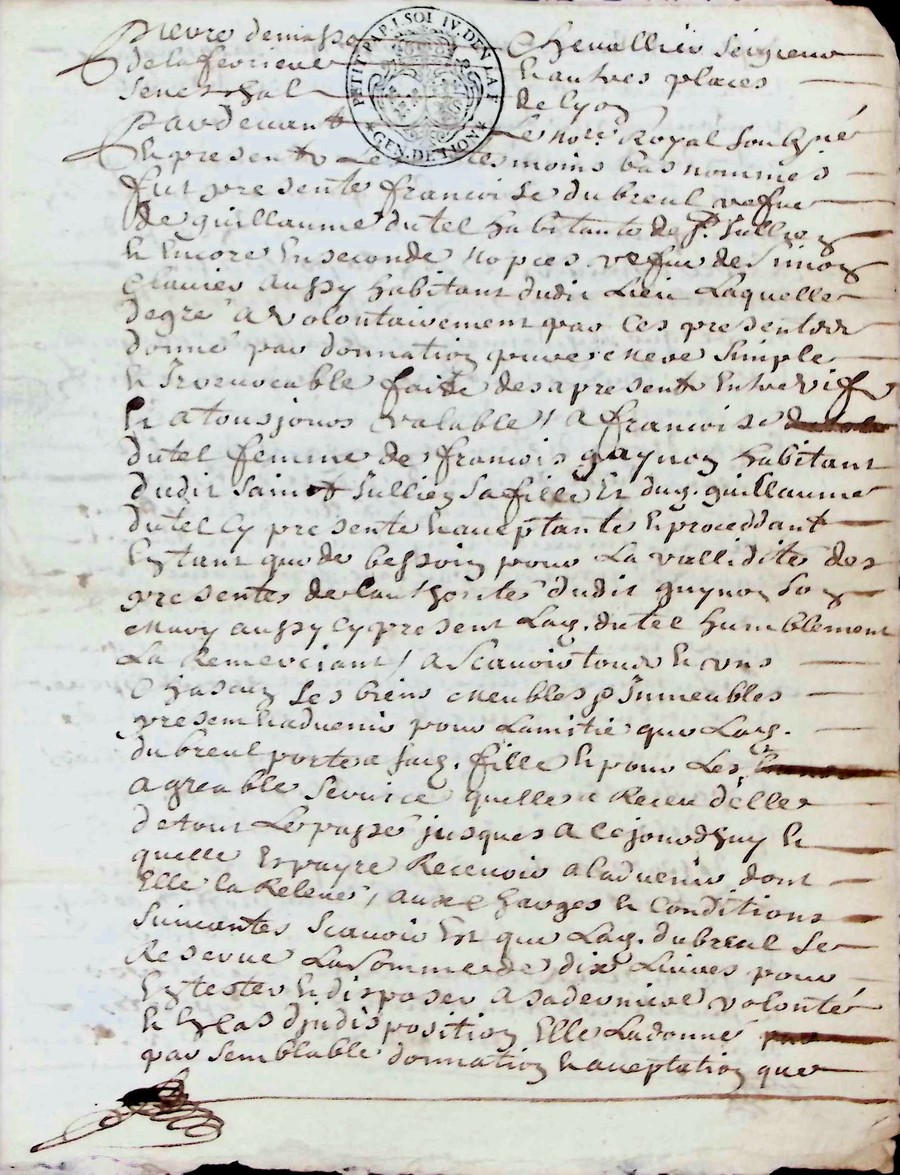 PETIT PAP. 1. SOL IV. DEN. LA F.
GEN. DE LION
Pierre demasso Chevallier seigneur
de la ferriere & autres places
Senechal de Lyon
Pardevant Le nore. Royal soubsigné
& presents Les tesmoins bas nommés
fut presente francoise dubreul vefue
de guillaume dutel habitante de St. Jullien
& encore en seconde nopces vefue de Simon
Clavier aussy habitant dudit Lieu Laquelle
de gré & volontairement par ces presentes
donne par donnation pure & simple
& irrevocable faite des a present entre vifs
& a tousjours valable / a francoise
dutel femme de francois guynon habitant
dudit Saint Jullien sa fille & dug. guillaume
dutel cy presente & aceptante & proceddant
en tant que de bessoin pour la vallidité des
presentes de l'authorité dudit guynon son
mary aussy cy present Lag. dutel humblement
La Remerciant / a scavoir tous & uns
Chascun ses biens meubles & Immeubles
presem & advenir pour Lamitié que Lag.
dubreul porte a sag. fille & pour Les
agreable service quelle a Receu delle
de tout Le passé jusques a ce jourdhuy &
quelle espayre Recevoir a ladvenir dont
Elle la Releve / aux charges & conditions
suivantes scavoir est que Lag. dubreul se
Reserve La somme de dix Livres pour
en tester & disposer a sa derniere volonté
& disposition Elle La donne
par semblable donnation & aceptation que